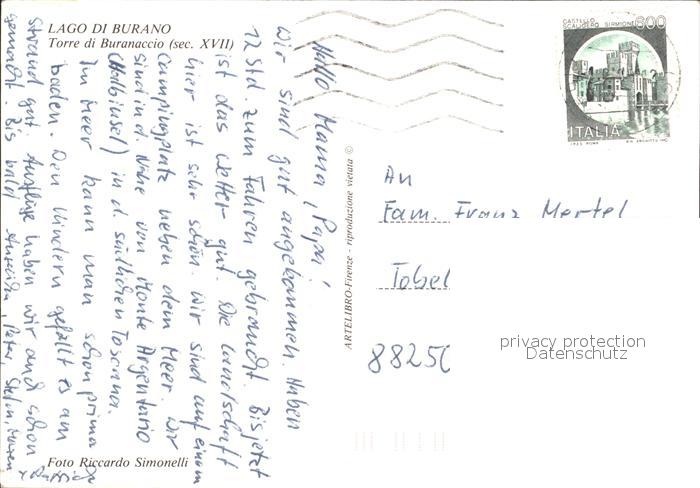 LAGO DI BURANO
Torre di Buranaccio (sec. XVII)
Hallo Mama, Papa!
Wir sind gut angekommen. Haben
12 Std. zum Fahren gebraucht. Bis jetzt
ist das Wetter gut. Die Landschaft
hier ist sehr schön. Wir sind auf einem
Campingplatz neben dem Meer. Wir
sind in d. Nähe von Monte Argentario
(Halbinsel) in d. südlichen Toscana.
Im Meer kann man schon prima
baden. Den Kindern gefällt es am
Strand gut. Ausflüge haben wir auch schon
gemacht. Bis bald Peter, Stefan,
Foto Riccardo Simonelli
ARTELIBRO-Firenze - riproduzione vietata ©
CASTELLO SCALIGERO SIRMIONE 600
ITALIA
An
Fam. Franz Mertel
Tobel
8825
privacy protection
Datenschutz